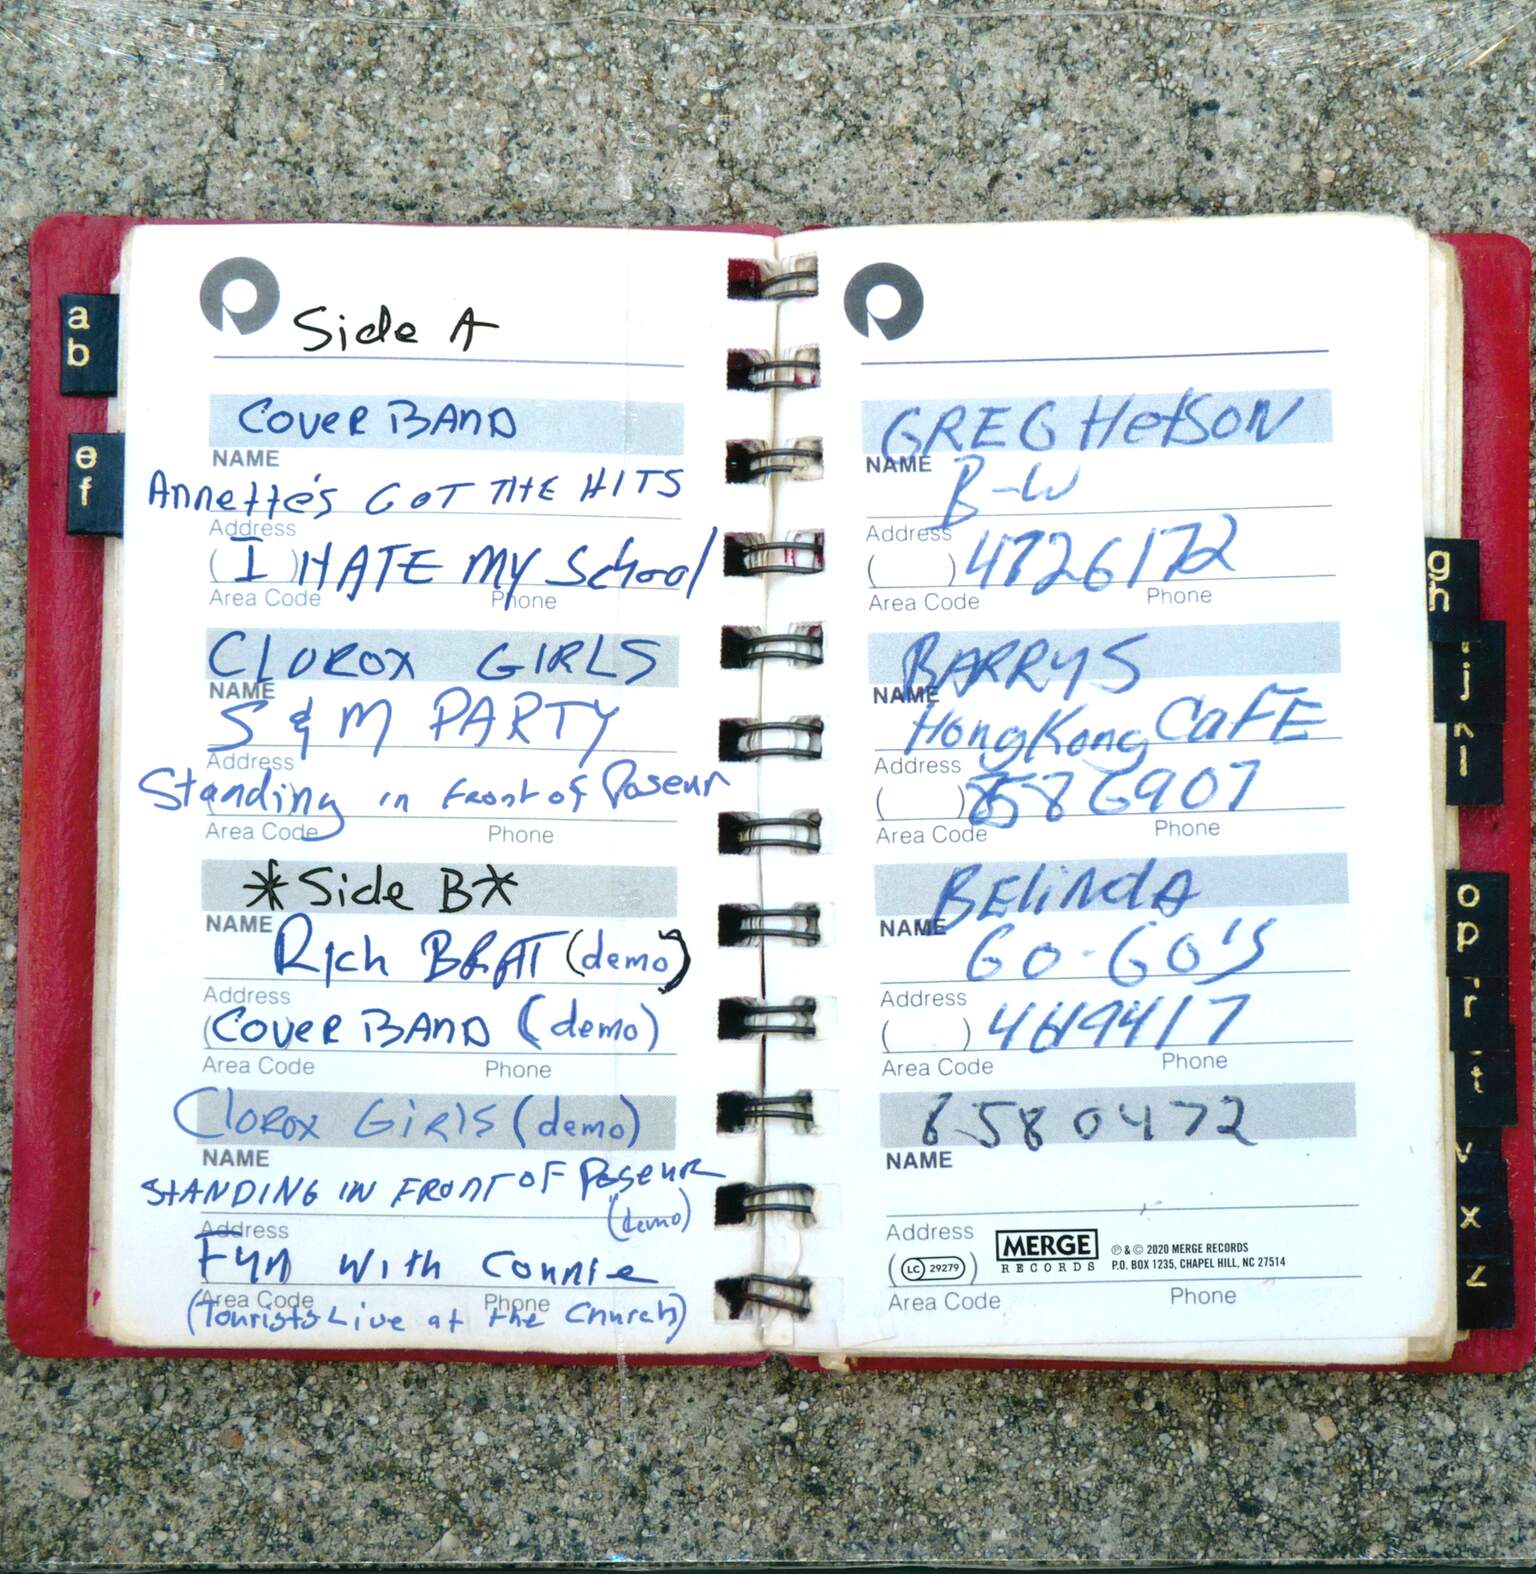 a
b
e
f
Side A
COVER BAND
NAME
Annette's GOT THE HITS
Address
(I) HATE MY School
Area Code Phone
CLOROX GIRLS
NAME
S & M PARTY
Address
Standing in Front of Poseur
Area Code Phone
*Side B*
NAME
Rich BRAT (demo)
Address
(COVER BAND (demo)
Area Code Phone
Clorox GIRLS (demo)
NAME
STANDING IN FRONT OF Poseur
(demo)
Address
FUN With Connie
Area Code Phone
(Tourists Live at the Church)
GREG HetSON
NAME
B-W
Address
( ) 4726172
Area Code Phone
BARRYS
NAME
HongKong CaFE
Address
( ) 8586907
Area Code Phone
BElindA
NAME
GO-GO'S
Address
( )
Area Code Phone
6580472
NAME
Address
MERGE
RECORDS
℗ & © 2020 MERGE RECORDS
P.O. BOX 1235, CHAPEL HILL, NC 27514
(LC 29279)
Area Code Phone
g
h
j
l
o
p
r
t
v
x
z